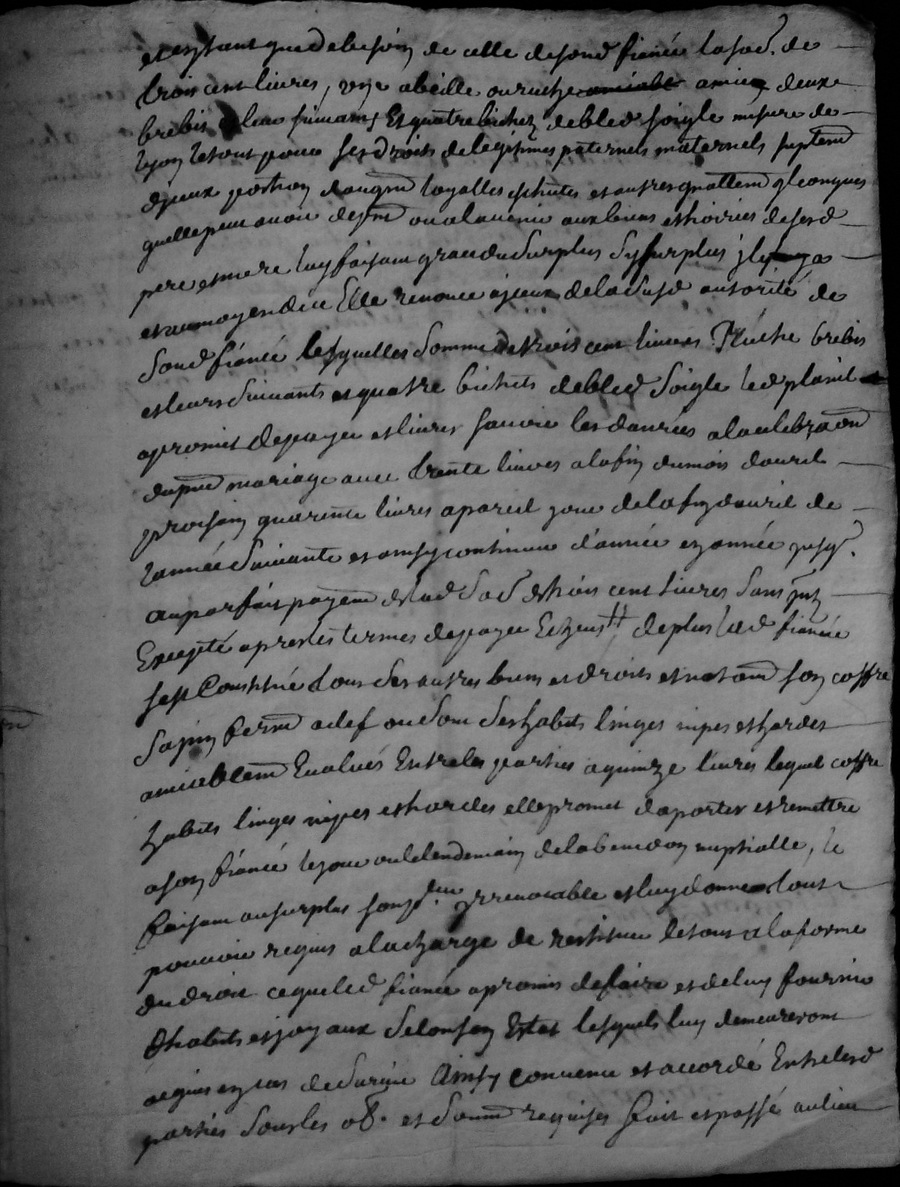 et en tant que de besoin de celle desond fiancé la so͠e. de
trois cent livres, une abeille ou ruche amiex deux
brebis leur suivans Et quatre bichez debled soigle mesure de
lyon le tout pour ses droits de legitimes paternels maternels suplem͠
d'jceux portion daugm͠ loyalles eschutes et autres qlconques
quelle peut avoir de p͠nt ou alavenir aux biens et hoiries de sesd
pere et mere luy faisant grace du surplus sy surplus jl y a
et au moyen dece Elle renonce a jceux delasusd autorité de
Sond fiancé lesquelles Somme de trois cent livres Ruche brebis
et leurs Suivants et quatre bichets debled Soigle led
a promis depayer et livrer savoir les danrées ala celebra͠on
dup͠nt mariage avec trente livres a lafin dumois davril
prochain quarente livres apareil jour de la fin davril de
lannée Suivante et ainsy continuer d'année en année jusq.
au parfait payem͠ delad So͠e de trois cent livres Sans jnt͠
Excepté apres les termes depayer Echeus # de plus lad fiancée
sest Constitué tous Ses autres biens et droits et notam͠ son coffre
Sapin ferm͠ a clef ou Sont Ses habits linges nipes et hardes
amiablem͠ Evalués Entre les parties a quinze livres lequel coffre
habits linges nipes et hardes elle promet daporter et remettre
a son fiancé le jour ou le lendemain dela benedon nuptialle, le
faisant au surplus son jrrevocable et luy donne tout
pouvoir requis ala charge de restituer le tout a la forme
du droit ce que led fiancé a promis defaire et deluy fournir
d'habits et joyaux Selon son Estat lesquels luy demeureront
aquis en cas de Survie Ainsy convenu et accordé Entre lesd
parties Sous les ob. et Soum͠ requises fait et passé au lieu